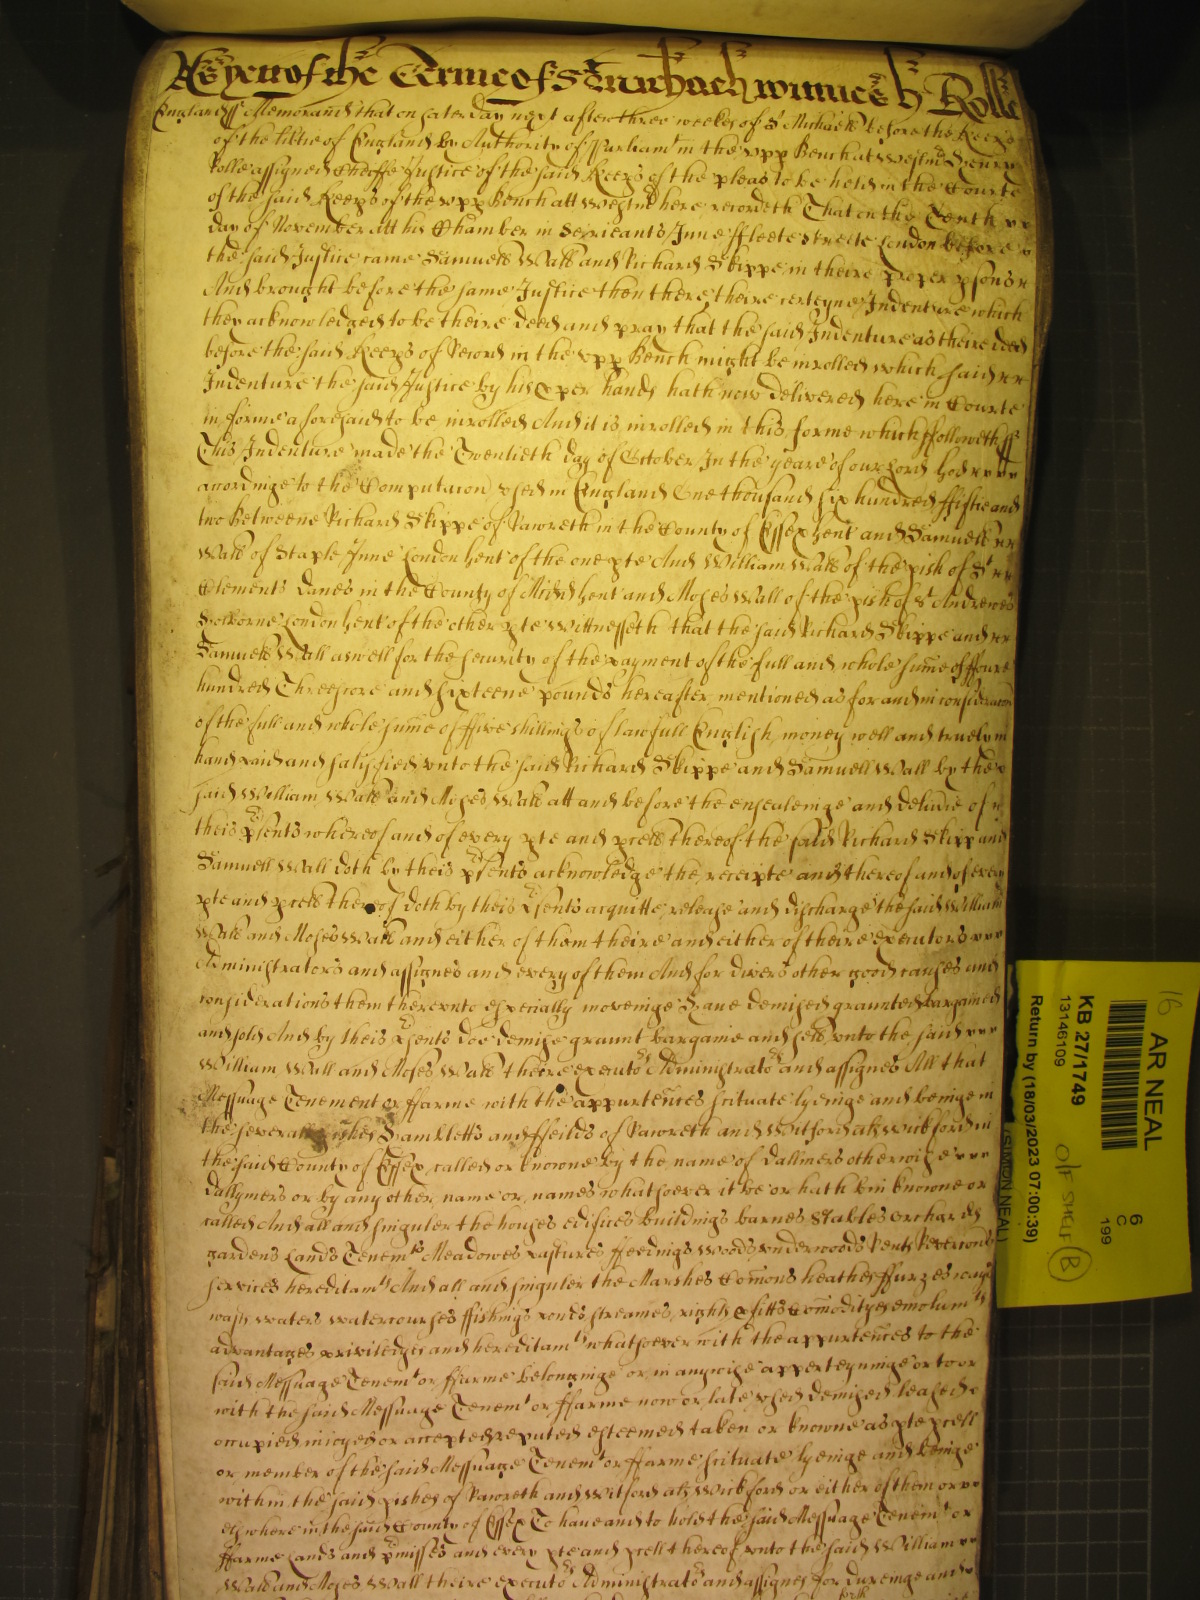 As yett of the Terme of St Michaell witnes H Rolle
England ss Memorand that on Saterday next after three weekes of St Michaell before the Keeps
of the libtie of England by Authority of Parliamt in the upp Bench at Westm Henry
Rolle assigned Cheiffe Justice of the said Keeps of the pleas to be held in the Courte
of the said Keeps of the upp Bench att Westm here recordeth That on the Tenth
day of November att his Chamber in Serieants Inne ffleetestreete London before
the said Justice came Samuell Wall and Richard Skippe in theire pper psons
And brought before the same Justice then there theire certeyne Indenture which
they acknowledged to be theire deed and pray that the said Indenture as theire deed
before the said Keeps of Record in the upp Bench might be inrolled which said
Indenture the said Justice by his pper hands hath now delivered here in Courte
in forme aforesaid to be inrolled And it is inrolled in this forme which ffolloweth ss
This Indenture made the Twentieth day of October In the yeare of our Lord God
accordinge to the Computacon used in England One thousand six hundred ffiftie and
two Betweene Richard Skippe of Raworeth in the County of Essex Gent and Samuell
Wall of Staple Inne London Gent of the one pte And William Wall of the pish of St
Clements Danes in the County of Midd Gent and Moses Wall of the pish of St Andrewes
Holborne London Gent of the other pte Wittnesseth that the said Richard Skippe and
Samuell Wall aswell for the security of the payment of the full and whole sume of ffoure
hundred Threescore and sixteene pounds hereafter mentioned as for and in consideracon
of the full and whole sume of ffive shillings of lawfull English money well and truely in
hand paid and satisfied unto the said Richard Skippe and Samuell Wall by the
said William Wall and Moses Wall att and before the ensealeinge and delivie of
theis psents whereof and of every pte and pcell thereof the said Richard Skipp and
Samuell Wall doth by theis psents acknowledge the receipte and thereof and of every
pte and pcell thereof doth by theis psents acquitte release and discharge the said William
Wall and Moses Wall and either of them theire and either of theire executors
Administrators and assignes and every of them And for divers other good causes and
considerations them thereunto especially moveinge Have demised graunted bargained
and sold And by theis psents doe demise graunt bargaine and sell unto the said
William Wall and Moses Wall theire executors Administrators and assignes All that
Messuage Tenement or ffarme with the appurtences scituate lyeinge and beinge in
the severall pishes Hambletts and ffeilds of Raworeth and Witford als Wickford in
the said County of Essex called or knowne by the name of Dallmers otherwise
Dallymers or by any other name or names whatsoever it be or hath bin knowne or
called And all and singuler the houses edifices buildings barnes stables orchards
gardens Lands Tenemts Meadowes pastures ffeedings woods underwoods Rents Revercons
services hereditamts And all and singuler the Marshes Comons heathes ffurzes ways
wasts waters watercourses ffishings ponds streames rights pfitts comodityes emolumts
advantages priviledges and hereditamts whatsoever with the appurtences to the
said Messuage Tenemt or ffarme belonginge or in anywise apperteyninge or to or
with the said Messuage Tenemt or ffarme now or late used demised leased
occupied injoyed or accepted reputed esteemed taken or knowne as pte pcell
or member of the said Messuage Tenemt or ffarme scituate lyeinge and beinge
within the said pishes of Raworeth and Witford als Wickford or either of them or
elswhere in the said County of Essex To have and to hold the said Messuage Tenemt or
ffarme Lands and pmisses and every pte and pcell thereof unto the said William
Wall and Moses Wall theire executors Administrators and assignes for dureinge and
16
AR NEAL
6
C
199
KB 27/1749
13146109
O/F SHELF B
Return by (18/03/2023 07:00:39)
(SIMON NEAL)